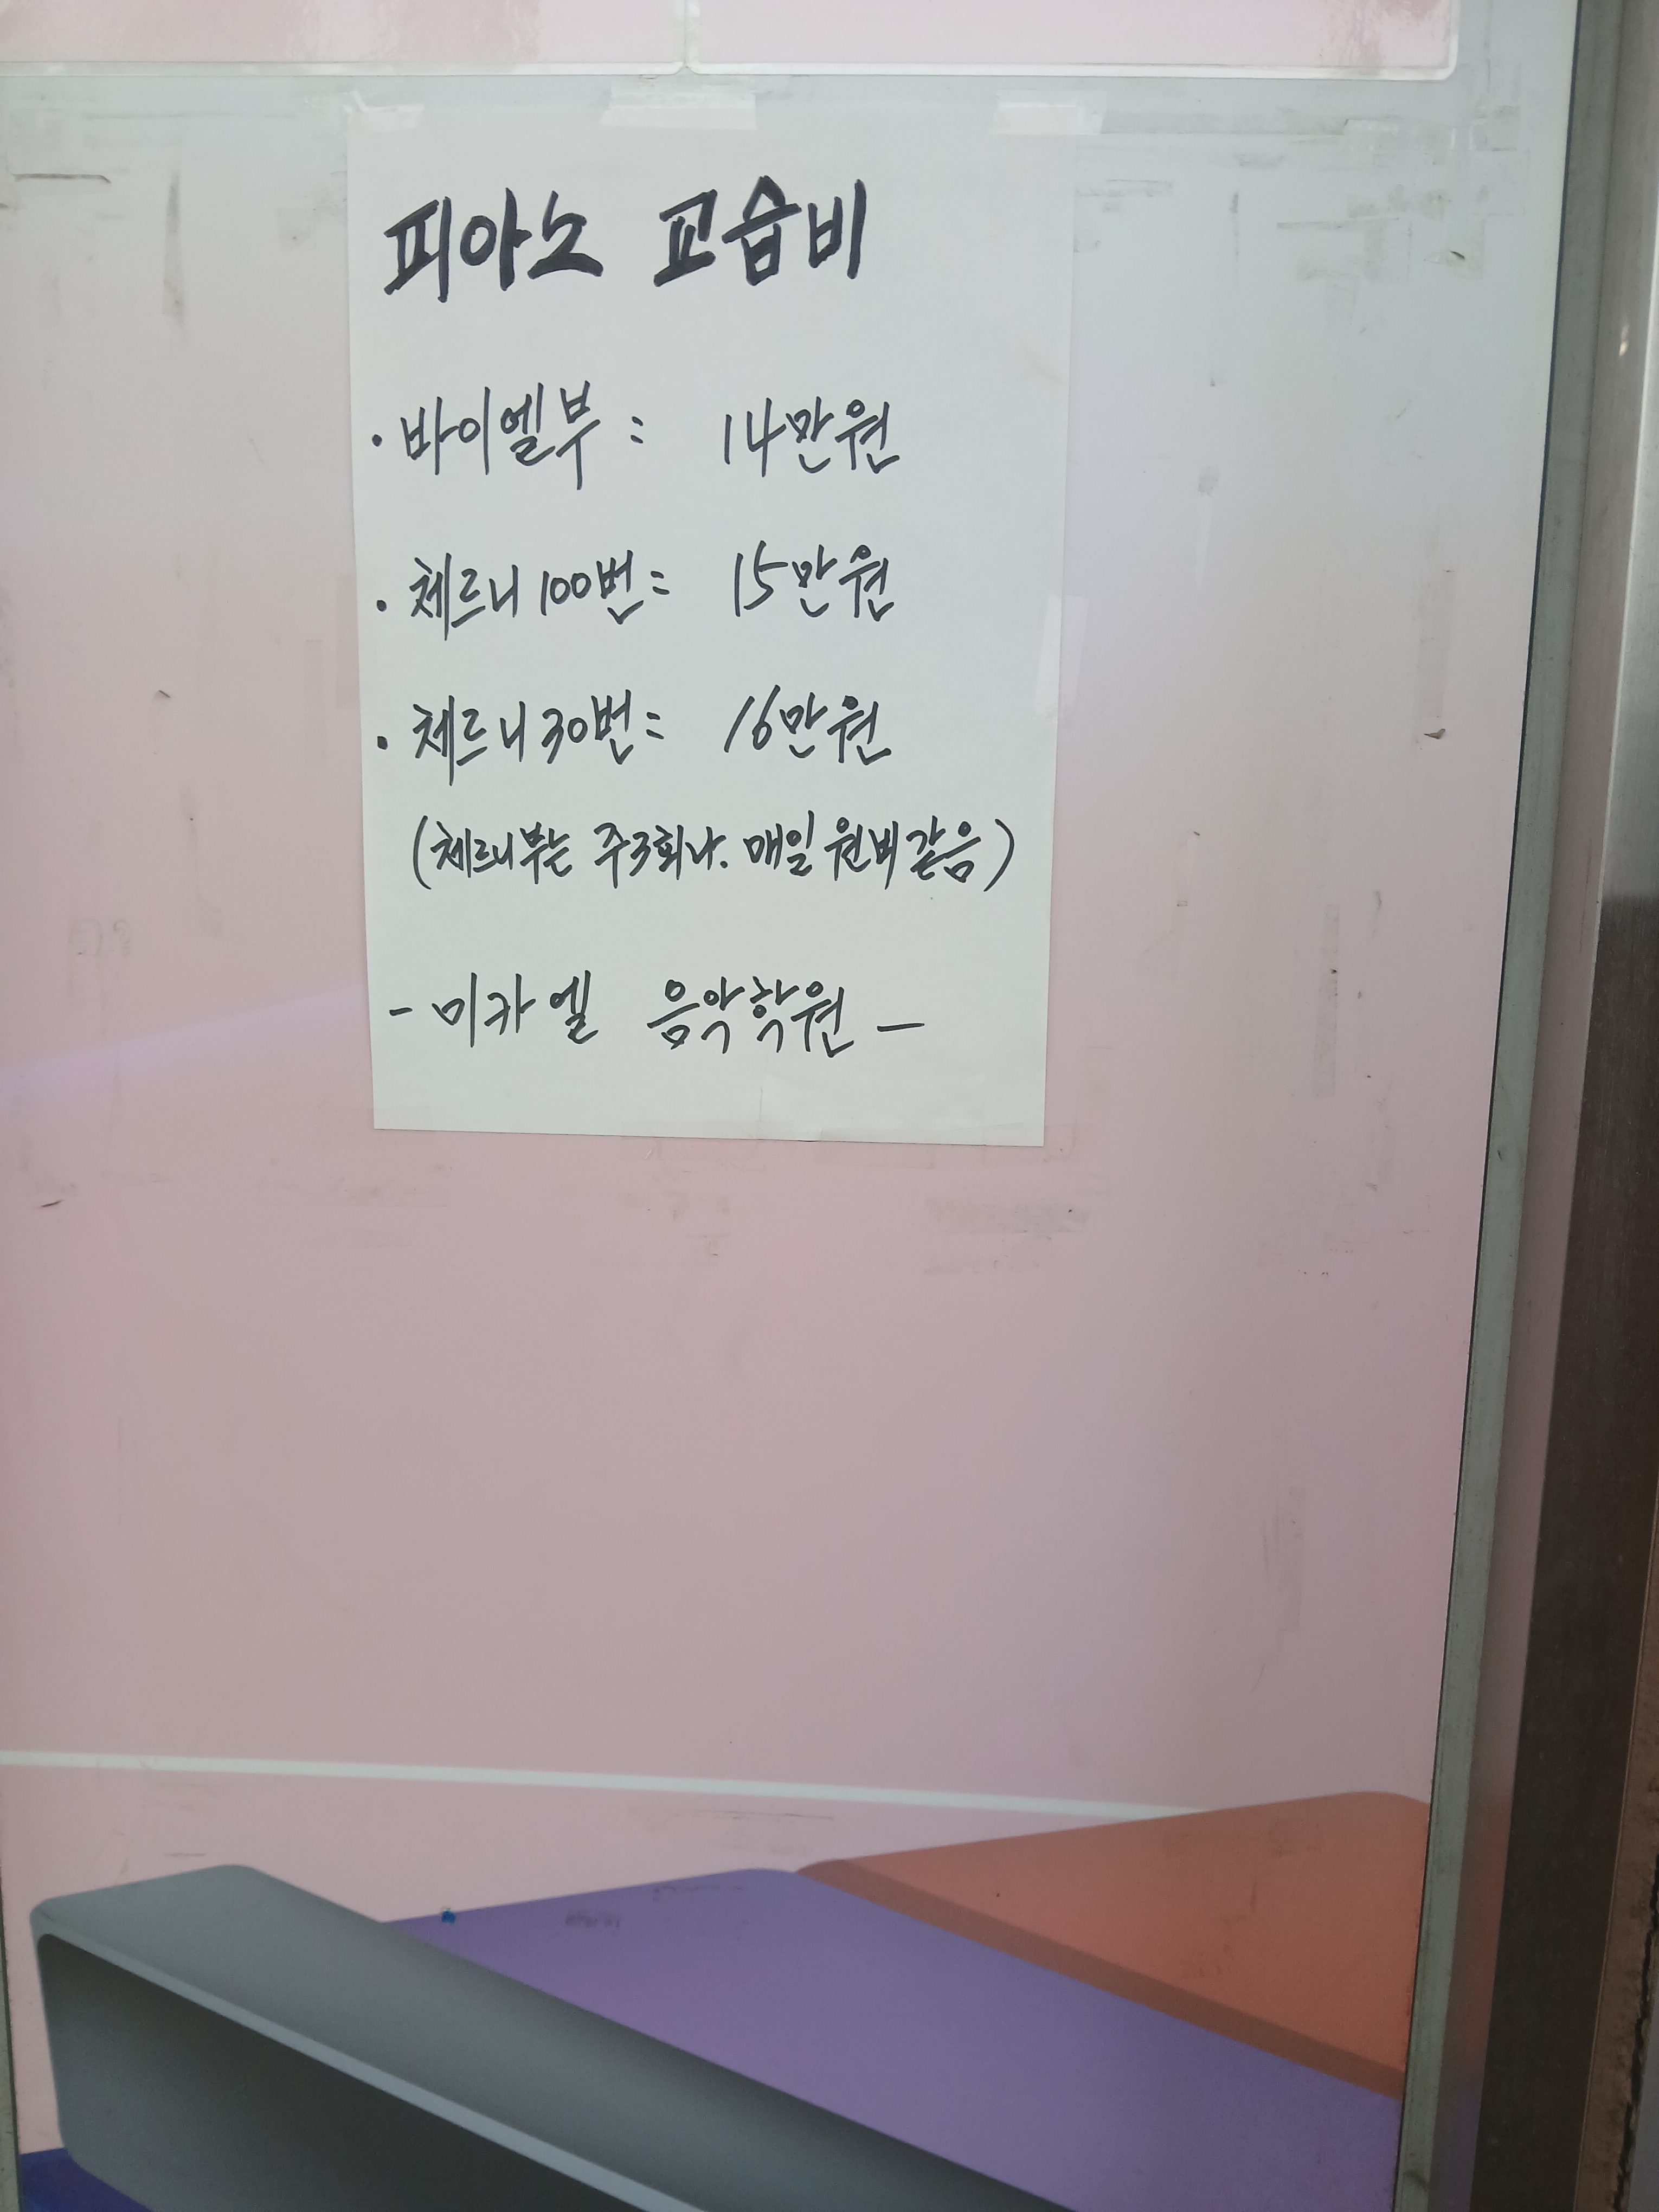 피아노 교습비
· 바이엘부 : 14만원
· 체르니 100번 : 15만원
· 체르니 30번 : 16만원
(체르니부는 주3회나. 매일 원비 같음)
- 미카엘 음악학원 -